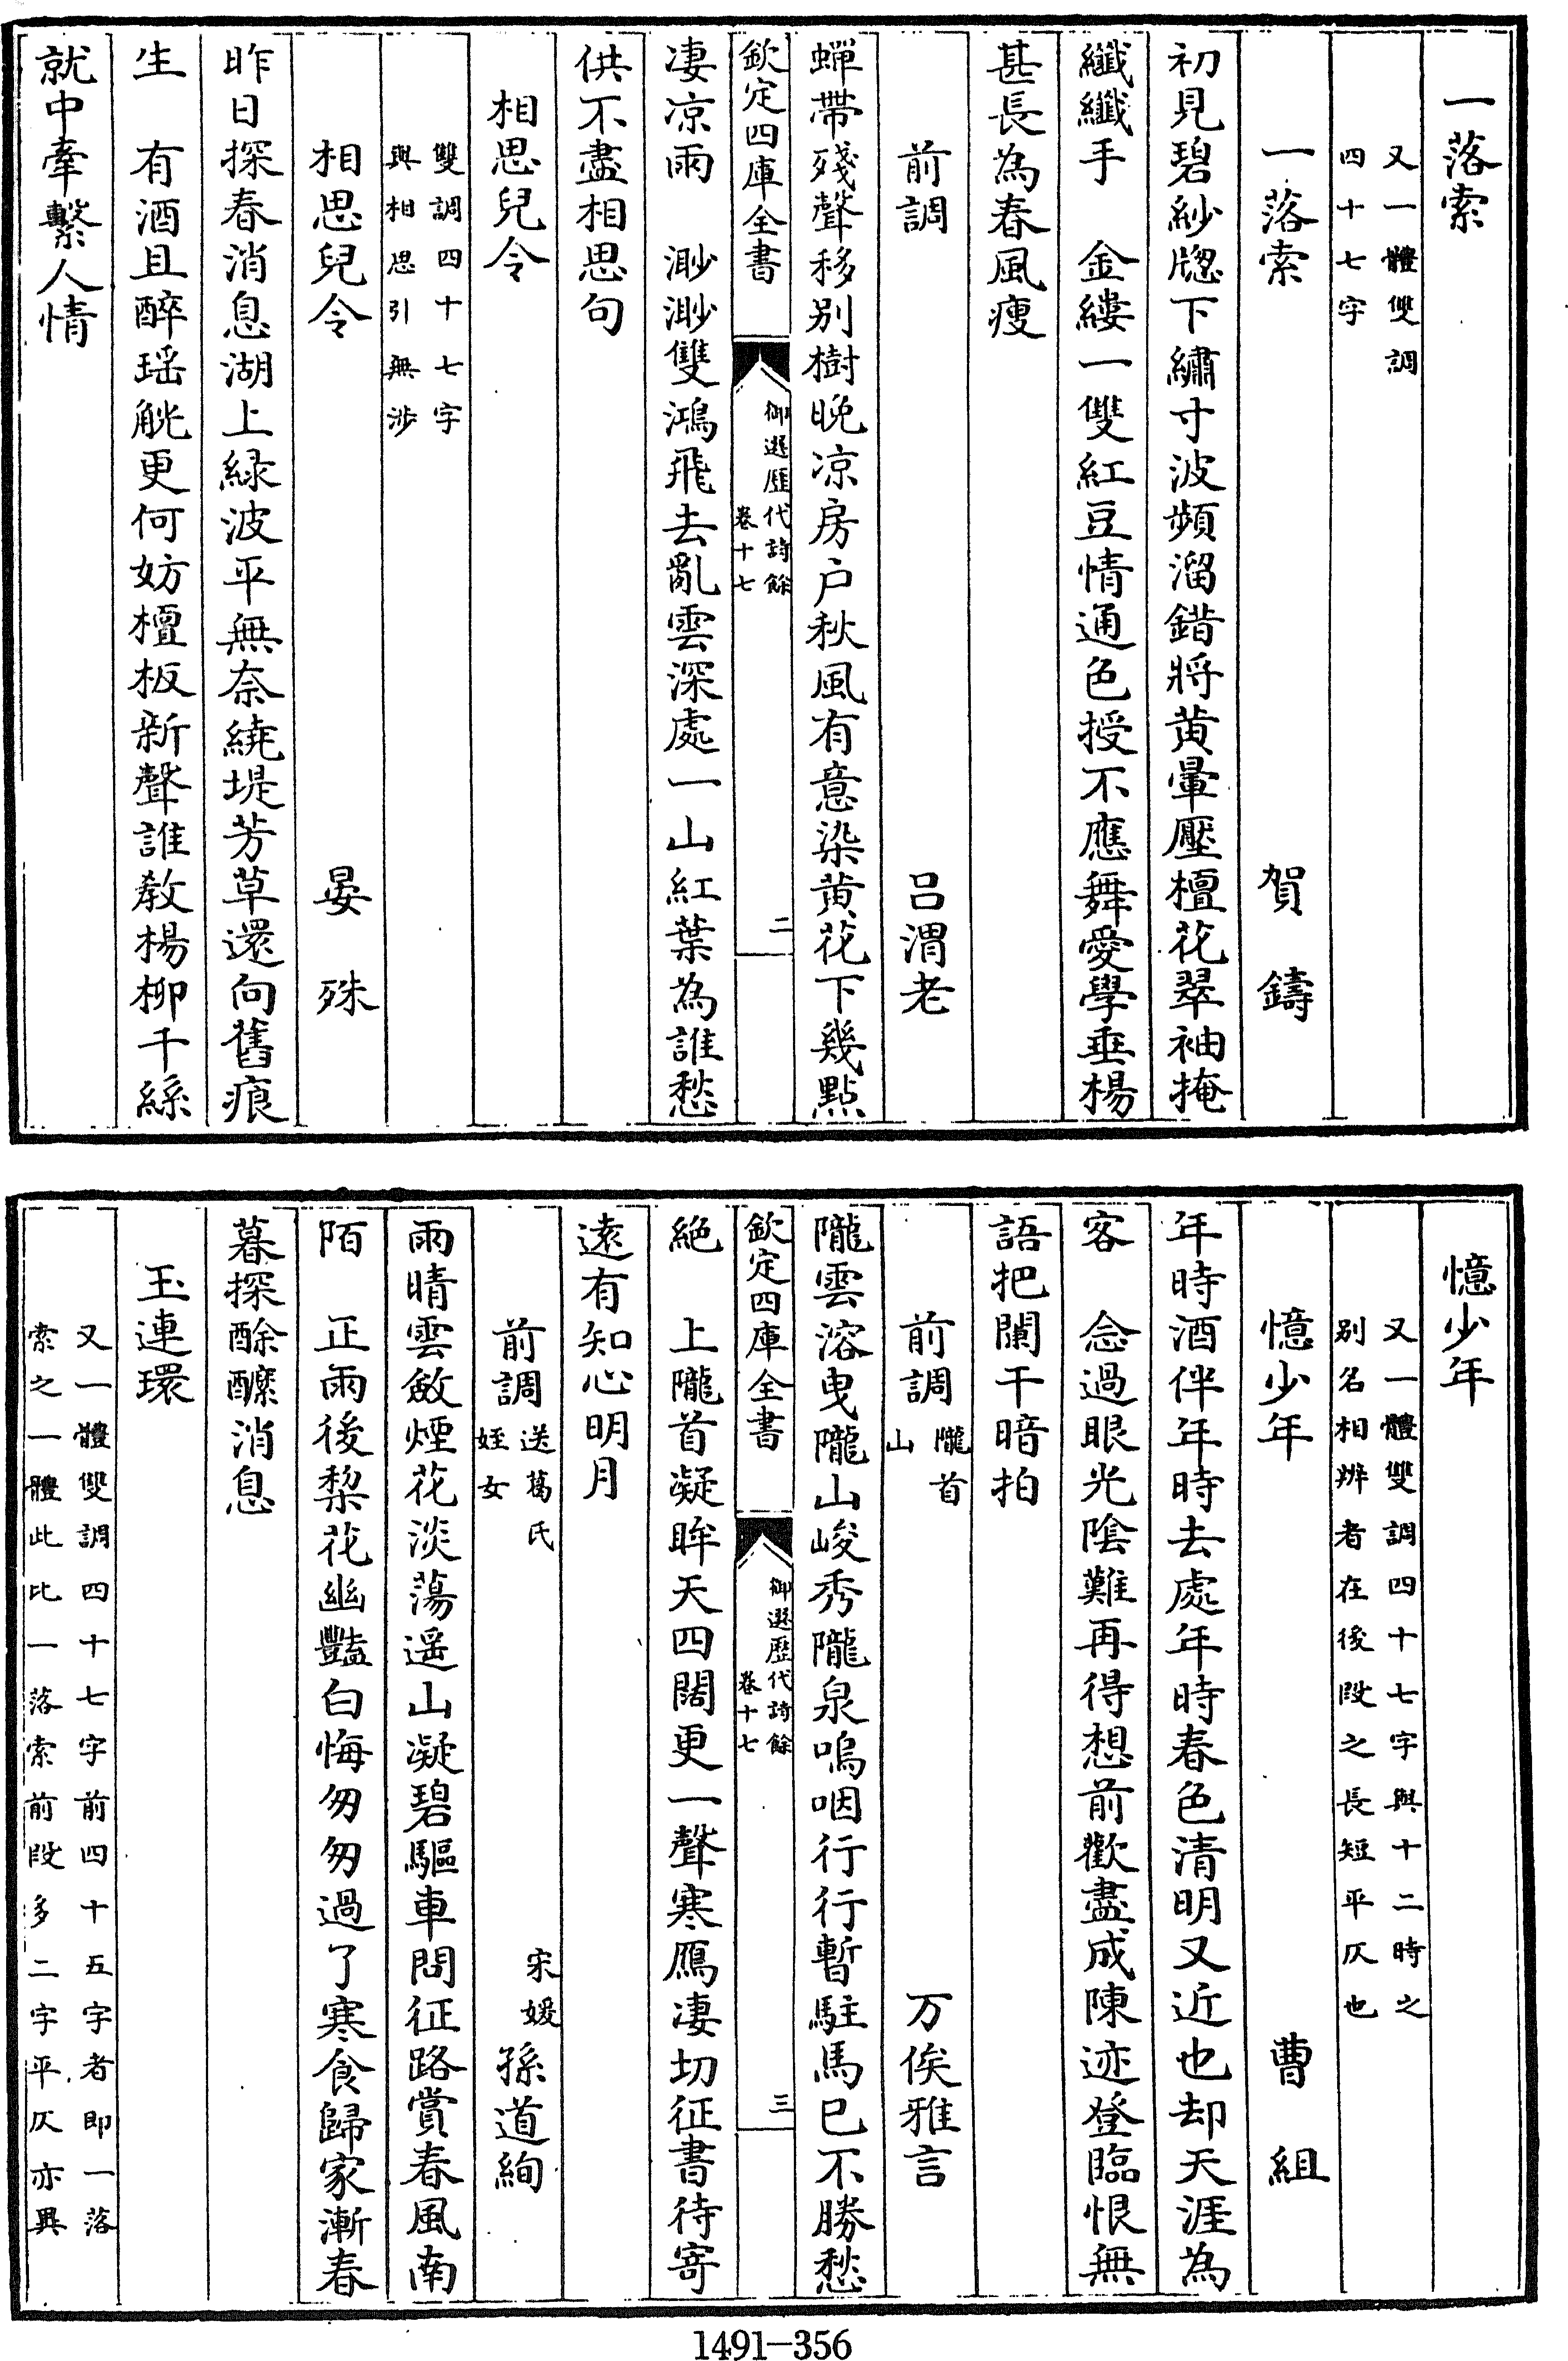 一落索
又一體雙調
四十七字
一落索　賀鑄
初見碧紗牕下繡寸波頻溜錯將黄暈壓檀花翠袖掩
纖纖手　金縷一雙紅豆情通色授不應舞愛學垂楊
甚長為春風瘦
前調　吕渭老
蟬帶殘聲移别樹晚凉房户秋風有意染黄花下幾點
欽定四庫全書
御選歷代詩餘
卷十七
二
凄凉雨　渺渺雙鴻飛去亂雲深處一山紅葉為誰愁
供不盡相思句
相思兒令
雙調四十七字
與相思引無涉
相思兒令　晏殊
昨日探春消息湖上緑波平無奈繞堤芳草還向舊痕
生　有酒且醉瑶觥更何妨檀板新聲誰教楊柳千絲
就中牽繫人情
憶少年
又一體雙調四十七字與十二時之
别名相辨者在後段之長短平仄也
憶少年　曹組
年時酒伴年時去處年時春色清明又近也却天涯為
客　念過眼光陰難再得想前歡盡成陳迹登臨恨無
語把闌干暗拍
前調　隴首
山　万俟雅言
隴雲溶曳隴山峻秀隴泉嗚咽行行暫駐馬已不勝愁
欽定四庫全書
御選歷代詩餘
卷十七
三
絶　上隴首凝眸天四闊更一聲寒鴈凄切征書待寄
遠有知心明月
前調　送葛氏
姪女　宋媛　孫道絢
雨晴雲斂煙花淡蕩遥山凝碧驅車問征路賞春風南
陌　正雨後梨花幽豔白悔匆匆過了寒食歸家漸春
暮探酴醾消息
玉連環
又一體雙調四十七字前四十五字者即一落
索之一體此比一落索前段多二字平仄亦異
1491-356